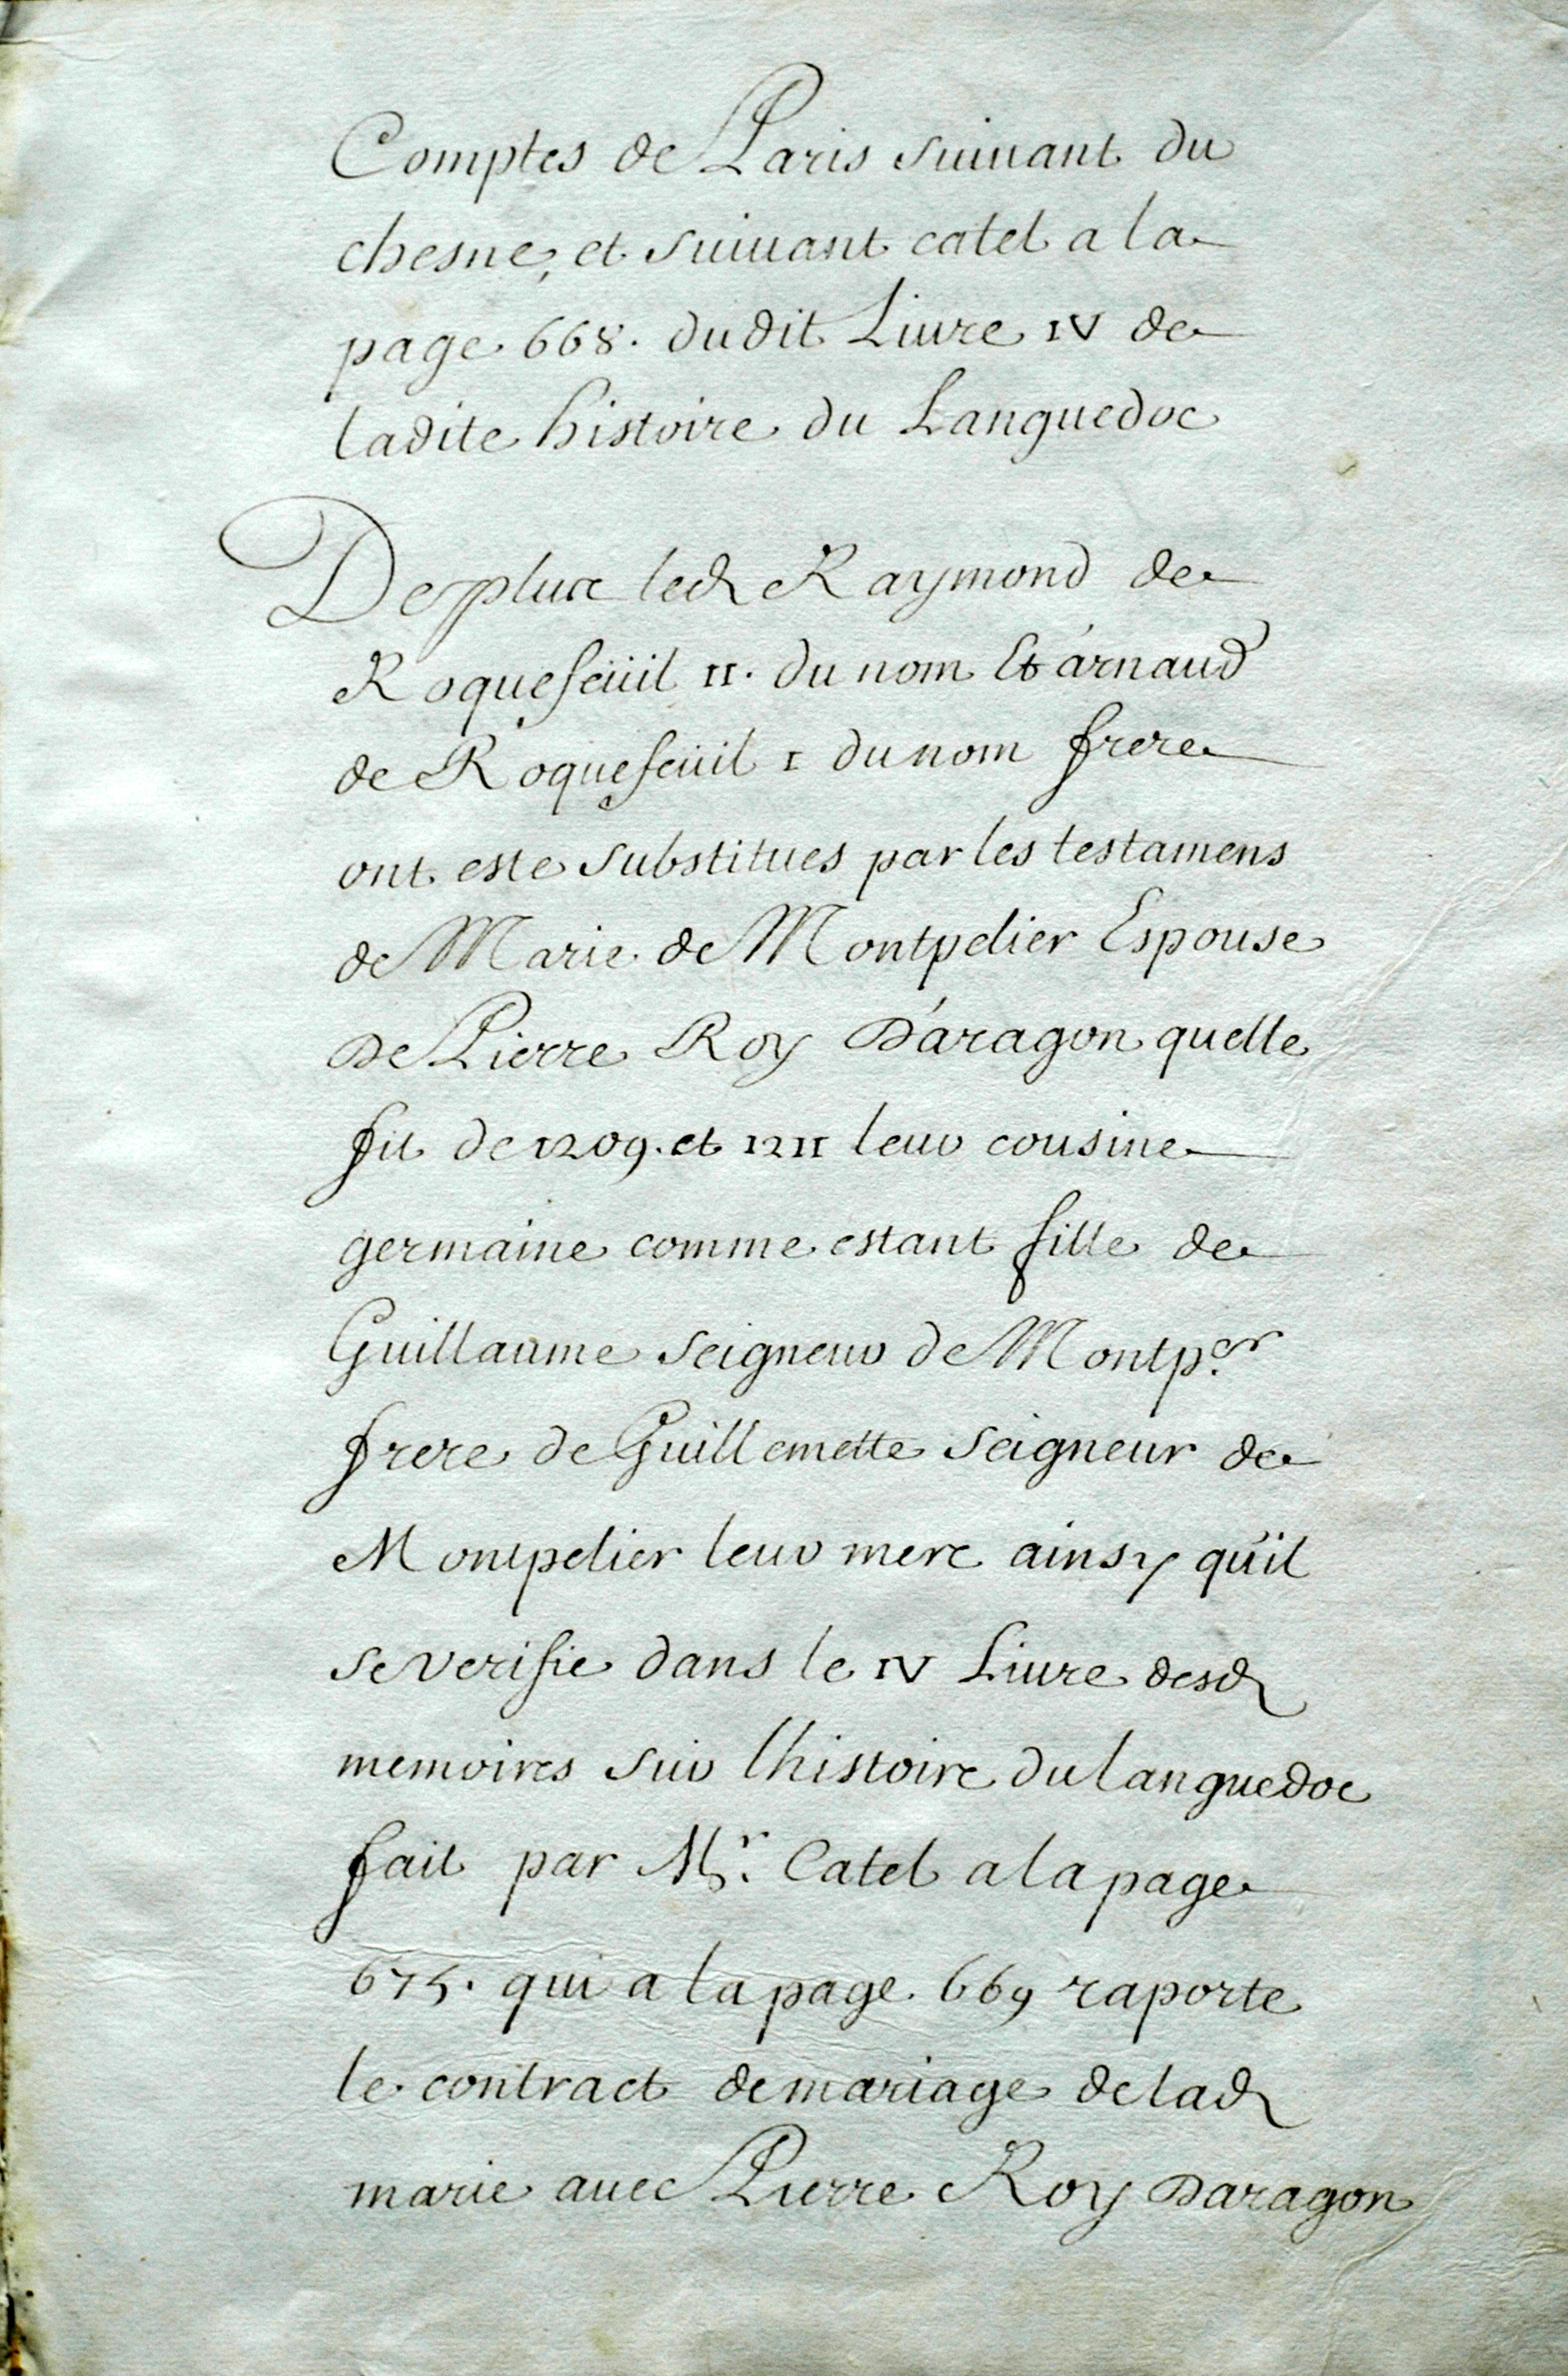 Comptes de Paris suiuant du
chesne, et suiuant catel a la
page 668. dudit Liure IV de
ladite histoire du Languedoc
De plus led Raymond de
Roquefeüil II. du nom Et árnaud
de Roquefeüil I du nom frere
ont este substitues par les testamens
de Marie de Montpelier Espouse
De Pierre Roy D'áragon quelle
fit de 1209. et 1211 leur cousine
germaine comme estant fille de
Guillaume seigneur de Montp.er
frere de Guillemette seigneur de
Montpelier leur mere ainsy quil
se verifie dans le IV Liure desd
memoires sur lhistoire du languedoc
fait par Mr. Catel a la page
675. qui a la page 669 raporte
le contract de mariage de lad
marie auec Pierre Roy Daragon